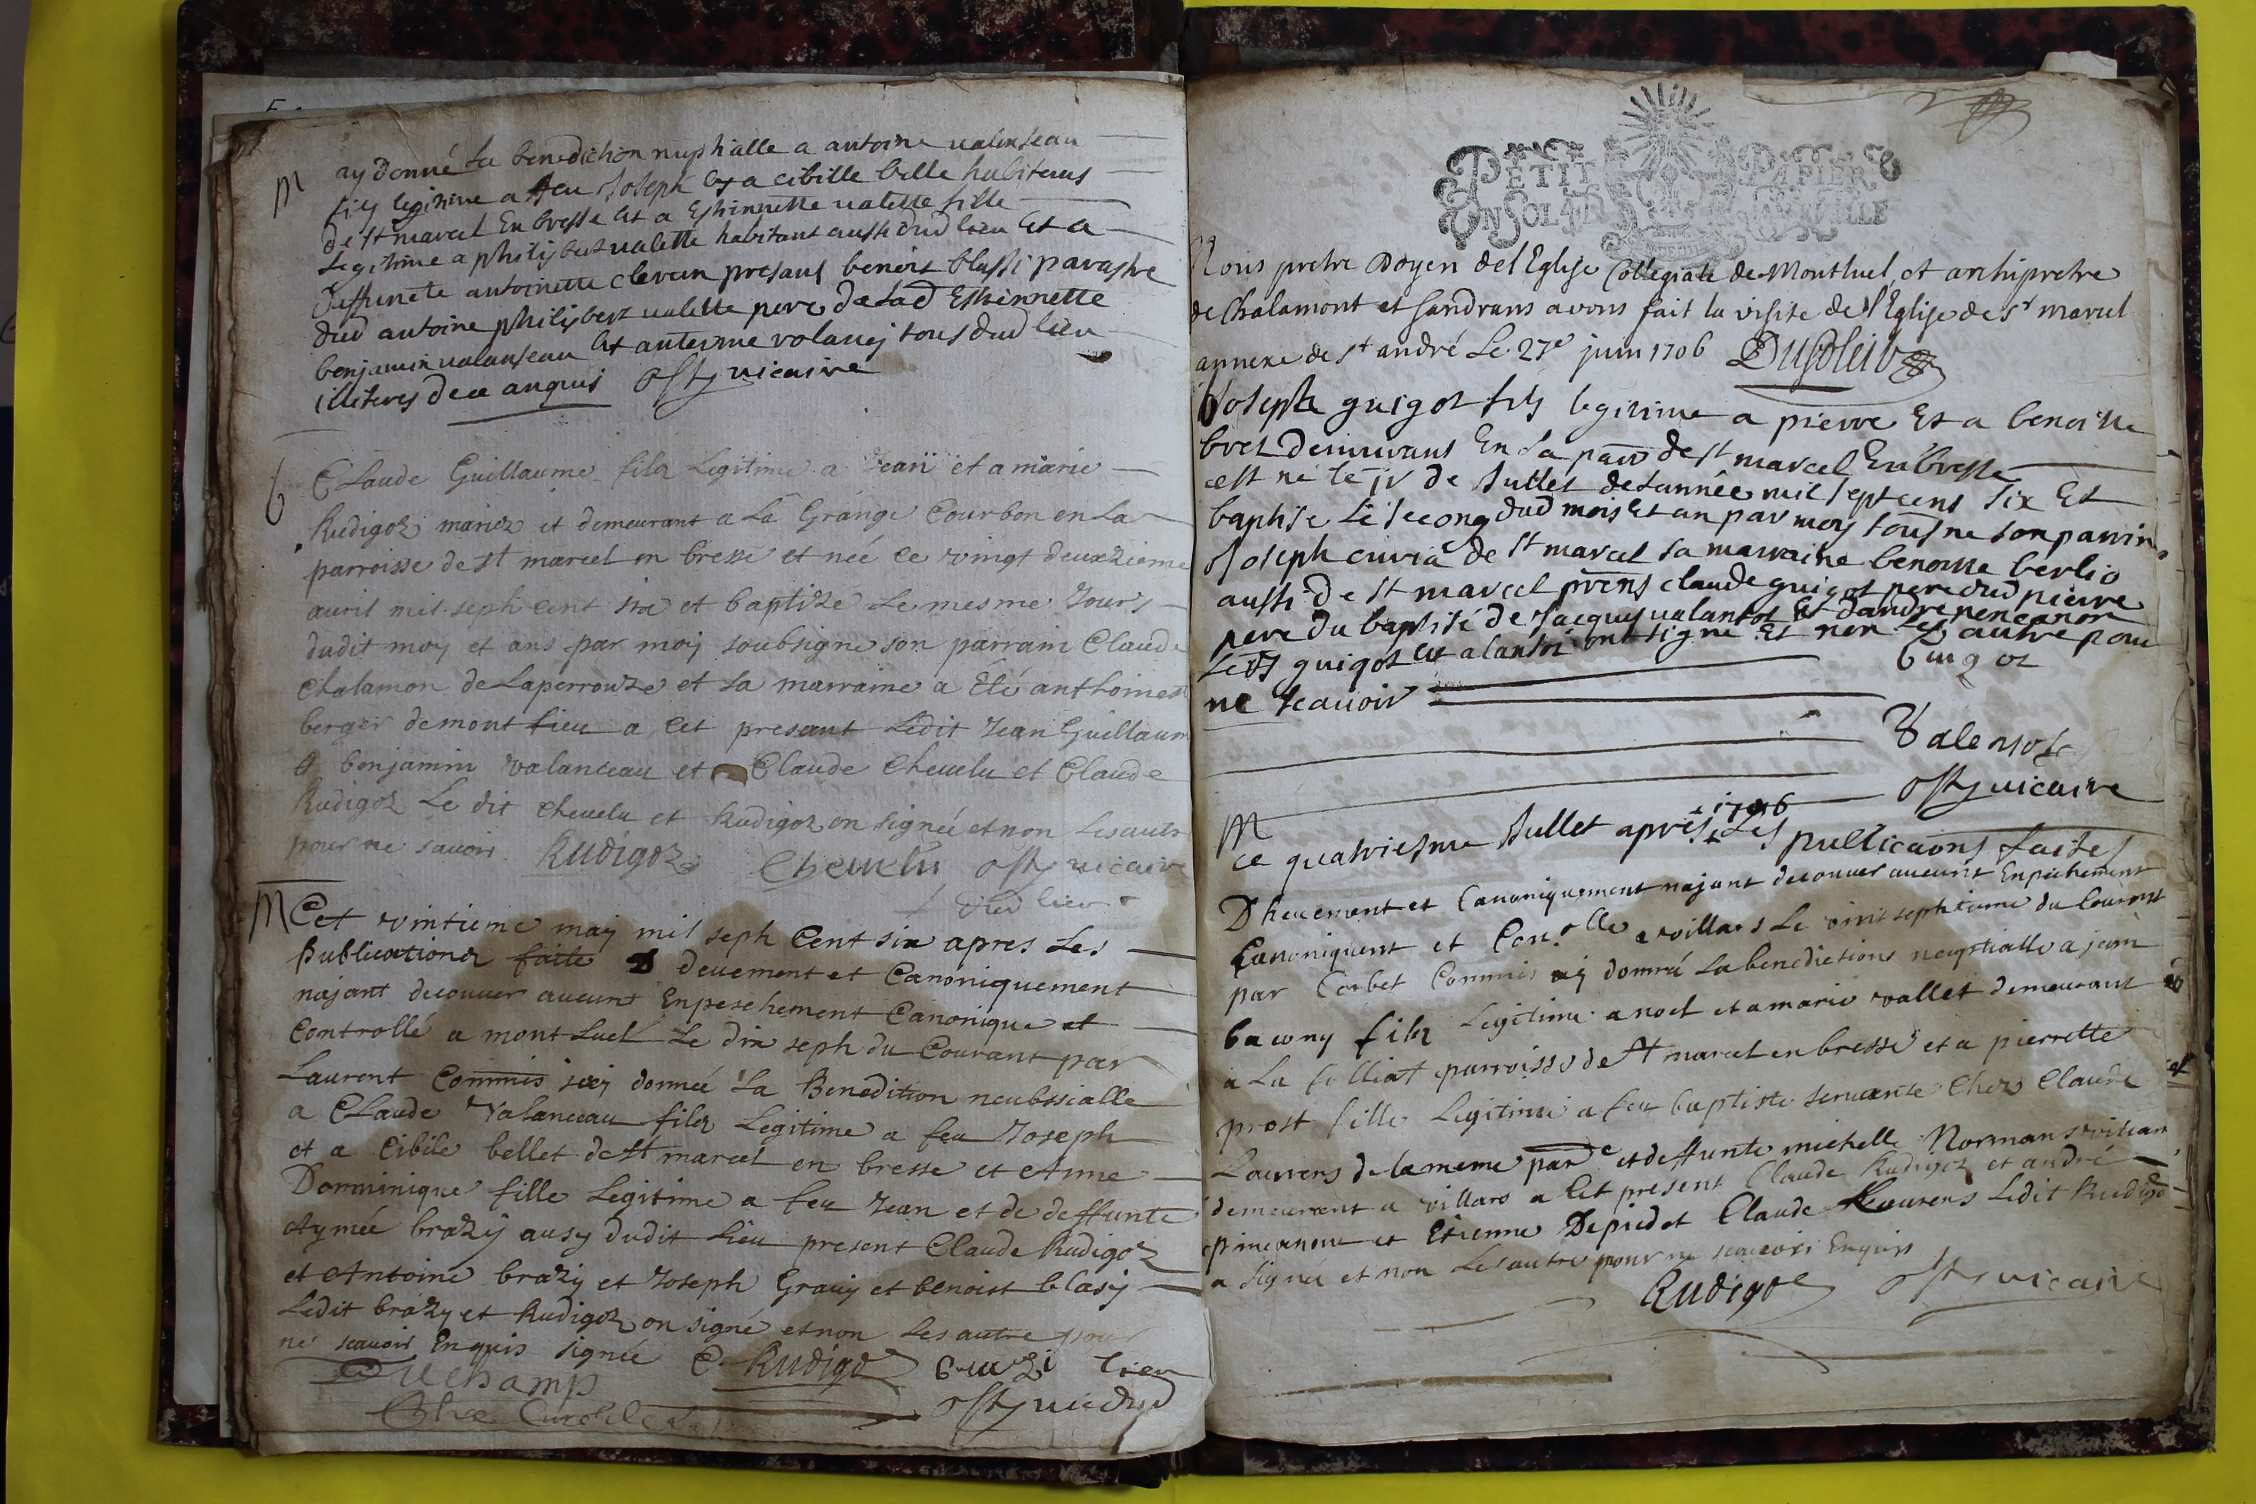 M
ay donné la benediction nuptialle a antoine valanseau
fils legitime a feu Joseph et a cibille belle habitans
de st marcel En bresse Et a Estiennette valette fille
Legitime a philibert valette habitant aussi dud lieu Et a
deffunete antoinette clevan presans benoit blassi parastre
dud antoine philiberz valette pere de lad Estiennette
benjamin valanseau Et anterme volancy tous dud lieu
illiteres de ce anquis osty vicaire
6
CLaude Guillaume filz Legitime a Jean et a marie
Rudigoz mariez et demeurant a La Grange Courbon en La
parroisse de st marcel en bresse et néé ce vingt deuxzieme
auril mil seph cent six et baptizé Le mesme Jours
dudit moy et ans par moy soubsigne son parrain Claude
chalamon de Laperrouze et sa marraine a Eté anthoinette
berger de mont lieu a cet presant Ledit Jean Guillaume
et benjamin valanceau et Claude cheuelu et Claude
Rudigoz Le dit cheuelu et Rudigoz on signéé et non Les autre
pour ne sauoir Rudigoz Cheuelu osty vicaire
dud lieu
M Cet vintieme may mil seph Cent six apres Les
Publicationz faite deuement et Canoniquement
najant decouuer aucunt Enpeschement Canonique et
Controllé a mont Luel Le dix seph du Courant par
Laurent Commis jay donnéé La Benedition neubssialle
a CLaude Valanceau filz Legitime a feu Joseph
et a Cibile bellet de st marcel en bresse et Anne
Domminique fille Legitime a feu Jean et de deffunte
Aymée brazy ausy dudit Lieu present Claude Rudigoz
et Antoine brazy et Joseph Grauy et benoist blasy
Ledit brazy et Rudigoz on signé et non Les autre pour
ne scauoir Enquis signéé C. Rudigoz brazi lieu
Duchamp osty vic dud
PETIT PAPIER
UN SOL LA FEUILLE
Nous pretre Doyen del Eglise Collegiale de Montluel, et archipretre
de Chalamont et sandrans avons fait la visite de l'Eglise de St marcel
annexe de st andré Le 27e juin 1706
6
Joseph guigot fils legitime a pierre Et a benoitte
bret demeurans En La parr de st marcel En bresse
est né le jr de Jullet de Lannée mil sept cens six Et
baptisé Le second dud mois Et an par moy sousne son parrin
Joseph cuvia de st marcel sa marraine benoitte berlio
aussi de st marcel prens claude guigot pere dud pierre
pere du baptisé de Jacques valantot Et dandre pencanon
Lesds guigot Et alantot ont signé Et non les autre pour
ne scauoir
Guigoz
ValenSot
osty vicaire
M
1706
ce quatriesme Jullet apres Les pullicaons faites
Dheuement et Canoniquement najant decouuer aucunt Enpechement
Canoniquent et Con.olle a villars Le vint septieme du Courant
par Corbet Commis ay donné La benedictions neuptialle a jean
bacony filz Legitime a noel et a marie vallet demeurant
a La folliat parroisse de St marcel en bresse et a pierrette
prost fille Legitime a feu baptiste seruante Chez Claude
Laurens de la meme parde et deffunte michelle Normans
demeurant a villars a Cet present Claude Rudigoz et andré
pineanon et Etienne Depiedot Claude Laurens Ledit Rudigo
a signéé et non Les autre pour ne scauoir Enquis
Rudigoz osty vicaire